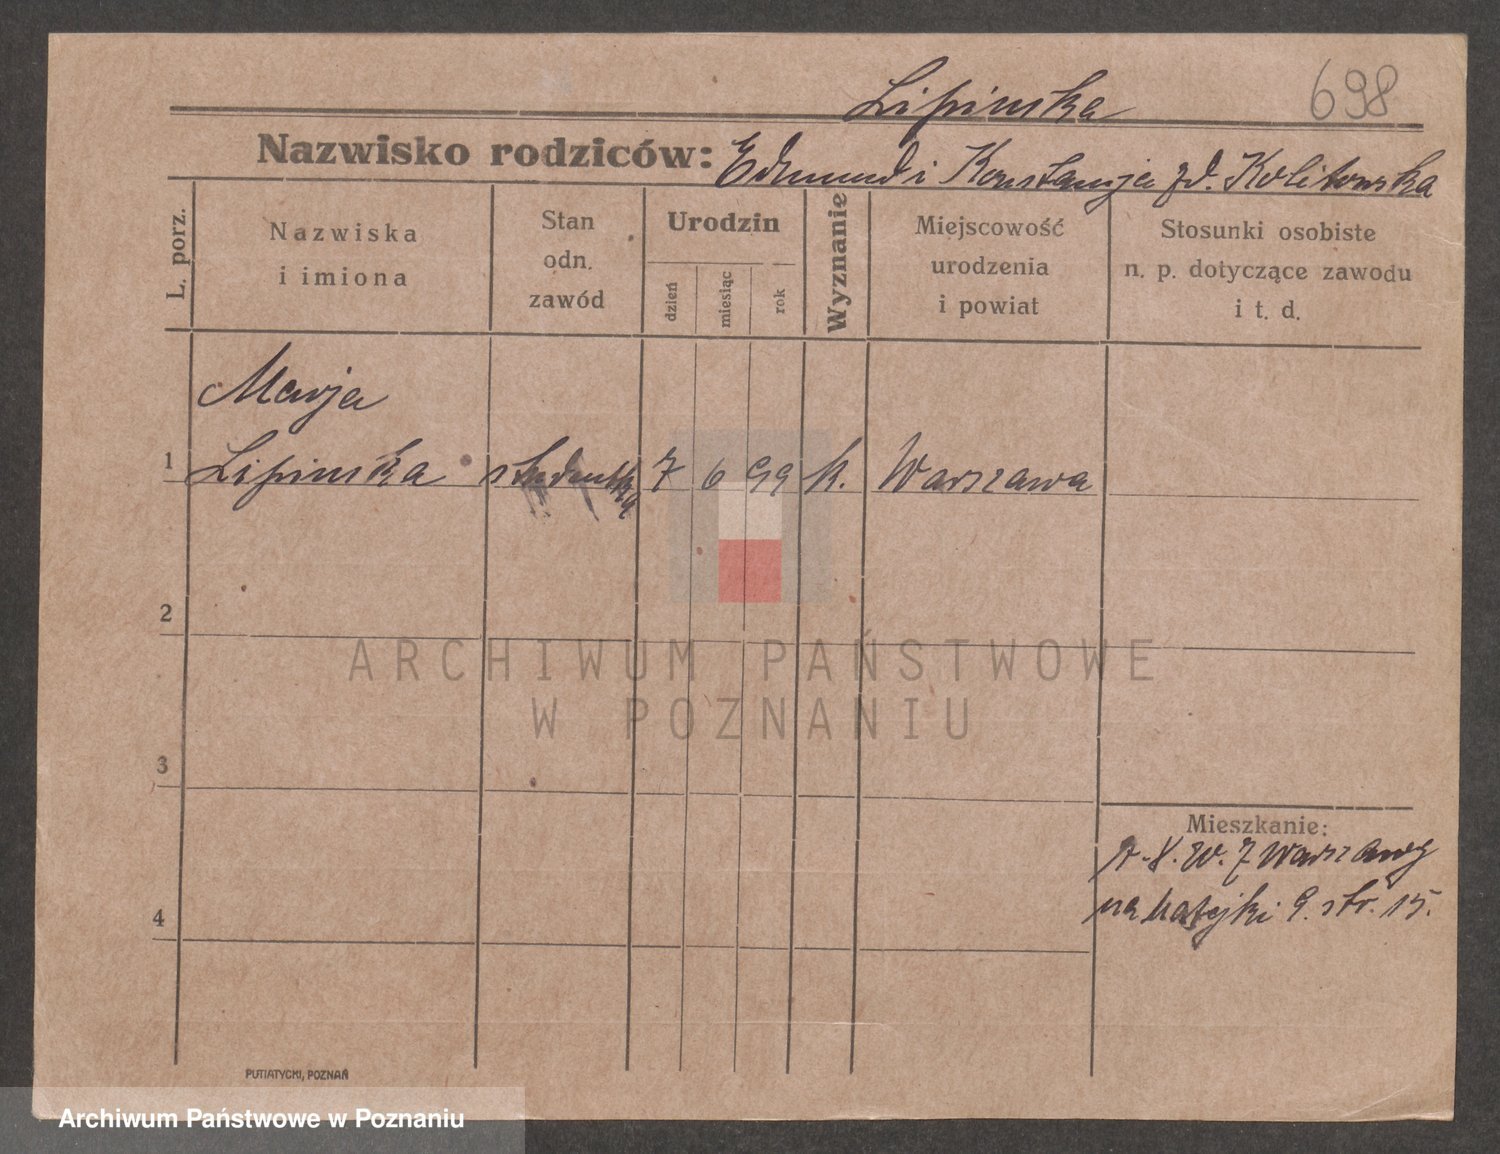 Lipinska
698
Nazwisko rodziców: Edmund i Konstancja zd. Kolitowska
L. porz.
Nazwiska
i imiona
Stan
odn.
zawód
Urodzin
dzień
miesiąc
rok
Wyznanie
Miejscowość
urodzenia
i powiat
Stosunki osobiste
n. p. dotyczące zawodu
i t. d.
Marja
1 Lipinska studentka 7 6 99 k. Warszawa
2
3
4
Mieszkanie:
W. Z Warszawy
na Matejki 9. str. 15.
PUTIATYCKI, POZNAŃ
ARCHIWUM PAŃSTWOWE
W POZNANIU
Archiwum Państwowe w Poznaniu